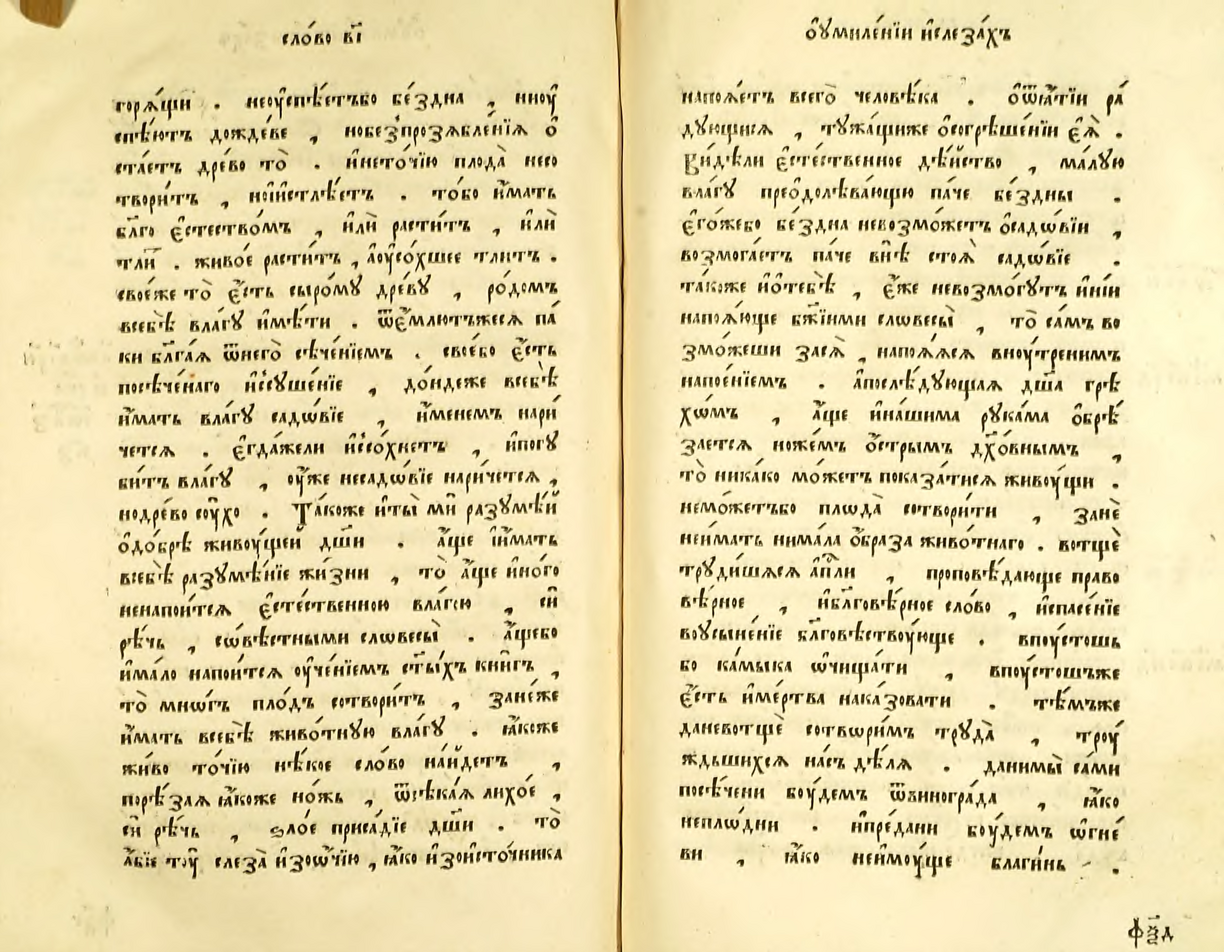 сло́во в҃і
горѧ́щи . неоу҆спѣ́етъбо бе́здна , ниоу҆
спѣ́ютъ дожде́ве , нобе́зпрозѧбле́нїѧ ѻ҆
ста́етъ дре́во то̀ . и҆нето́чїю плода̀ несо
твори́тъ , нои҆истлѣ́етъ . то́бо и҆́мать
бл҃го є҆стество́мъ , и҆лѝ расти́тъ , и҆лѝ
тли́т . живо́е расти́тъ , а҆оусо́хшее тли́тъ .
своеже то̀ є҆́сть сыро́мꙋ дре́вꙋ , ро́домъ
всебѣ̀ вла́гꙋ и҆мѣ́ти . ѿе́млютъжесѧ па́
ки бл҃га́ѧ ѿнего̀ сѣче́нїемъ . свое́бо є҆́сть
посѣче́наго и҆ссꙋше́нїе , до́ндеже всебѣ̀
и҆́мать вла́гꙋ садѡ́вїе , и҆́менемъ нари
че́тсѧ . є҆гда́жели и҆ссо́хнетъ , и҆погꙋ
би́тъ вла́гꙋ , оу҆́же несадѡ́вїе нарѝчетсѧ ,
нодре́во соу́хо . Та́коже и҆ты̀ мѝ разꙋмѣ́й
ѻ҆до́брѣ живоу́щей дш҃и . а҆́ще и҆́мать
всебѣ̀ разꙋмѣ́нїе жи́зни , то̀ а҆́ще и҆но́го
ненапои́тсѧ є҆сте́ственною вла́гою , сѝ
рѣ́чь , сѡвѣ́стными словесы̀ . а҆́щебо
и҆ма́ло напои́тсѧ оу҆че́нїемъ ст҃ы́хъ кни́гъ ,
то̀ мнѡ́гъ пло́дъ сотвори́тъ , зане́же
и҆́мать всебѣ̀ живо́тнꙋю вла́гꙋ . ꙗ҆́коже
жи́во то́чїю нѣ́кое сло́во на́йдетъ ,
порѣ́заѧ ꙗ҆́коже но́жь , ѿсѣка́ѧ лихо́е ,
сѝ рѣ́чь , ѕло́е приса́дїе дш҃и . то̀
а҆́бїе тоу̀ слеза̀ и҆зоо҆чїю , ꙗ҆́ко и҆зои҆сто́чника
ѻ҆оумиле́нїи и҆слеза́хъ
напоѧ́етъ всего̀ человѣ́ка . ѻ҆ѿꙗ́тїи ра́
дꙋющисѧ , тꙋжа́щиже ѻ҆согрѣше́нїи є҆ѧ̀ .
Ви́дѣли є҆сте́ственное дѣ́йство , ма́лꙋю
вла́гꙋ преѻдолѣва́ющю па́че бе́здны .
є҆го́жебо бе́здна невозмо́жетъ ѻ҆садѡ́вїи ,
возмога́етъ па́че внѣ̀ стоѧ̀ садѡ́вїе .
та́коже и҆ѻ҆тебѣ̀ , є҆́же невозмо́гꙋтъ и҆ні́и
напоѧ́юще бж҃їими словесы̀ , то̀ са́мъ во
змо́жеши засѧ̀ , напоѧ́ѧсѧ вноу́тренимъ
напое́нїемъ . а҆послѣ́дꙋющаѧ дш҃а грѣ
хѡ́мъ , а҆́ще и҆на́шима рꙋка́ма ѻ҆брѣ́
заетсѧ ноже́мъ ѻ҆́стрымъ дх҃о́внымъ ,
то̀ ника́ко мо́жетъ показа́тисѧ живоу́щи .
немо́жетъбо плѡда̀ сотвори́ти , занѐ
неи́мать нима́ла ѻ҆́браза живо́тнаго . вотщѐ
трꙋди́шасѧ а҆пⷭ҇ли , проповѣ́дающе право
вѣ́рное , и҆бл҃говѣ́рное сло́во , и҆спасе́нїе
воусыне́нїе бл҃говѣствоу́юще . впоу́стошь
бо ка́мыка ѡ҆чища́ти , впоу́стошъже
є҆́сть и҆ме́ртва наказова́ти . тѣ́мъже
даневотщѐ сотвѡри́мъ трꙋда̀ , троу
жда́ьшихсѧ на́съ дѣ́лѧ . данимы̀ са́ми
посѣ́чени боу́демъ ѿвиногра́да , ꙗ҆́ко
неплѡ́дни . и҆пре́дани боу́демъ ѡ҆гне́
ви , ꙗ҆́ко неи҆моу́ще благи́нь .
ф҃ѯд